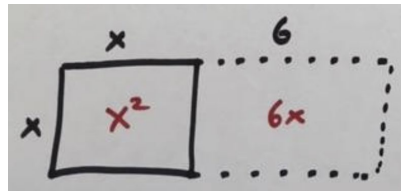 x 6
x x² 6x